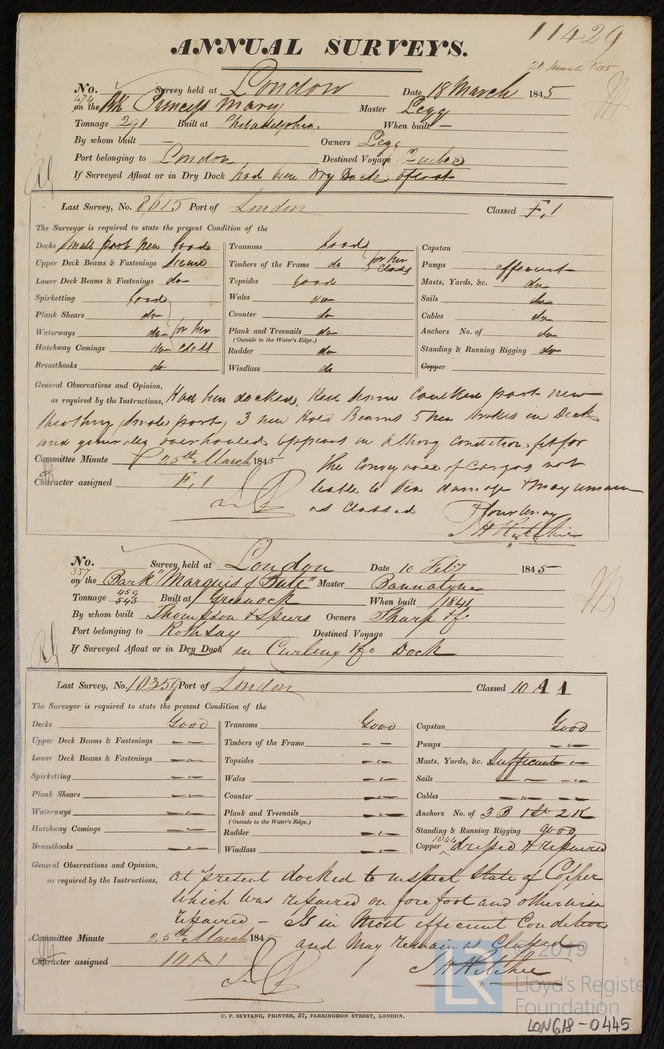 11429
ANNUAL SURVEYS.
No. 474 Survey held at London Date 18 March 1845
on the Bk Princess Mary Master Legg
Tonnage 291 Built at Philadelphia When built —
By whom built — Owners Legg
Port belonging to London Destined Voyage Quebec
If Surveyed Afloat or in Dry Dock had been Dry Dock afloat
Last Survey, No. 8615 Port of London Classed Æ.1
The Surveyor is required to state the present Condition of the
Decks small part new good Transoms Good Capstan
Upper Deck Beams & Fastenings Timbers of the Frame do Pumps efficient
Lower Deck Beams & Fastenings do Topsides Good Masts, Yards, &c. do
Spirketting Good Wales do Sails do
Plank Shears do Counter do Cables do
Waterways do for her Plank and Treenails do Anchors No. of do
(Outside to the Water's Edge.)
Hatchway Comings do class Rudder do Standing & Running Rigging do
Breasthooks do Windlass do Copper
General Observations and Opinion, Had been docked, Keel down caulked part new
as required by the Instructions,
sheathing, small part, 3 new Hold Beams 5 new strakes in Deck
and generally overhauled appears in a strong condition, fit for
Committee Minute 25th March 1845 the conveyance of cargoes not
liable to sea damage & may remain
Character assigned Æ.1 as classed
No. 357 Survey held at London Date 10 Feby 1845
on the Bark "Marquis of Bute" Master Bannatyne
Tonnage 459 543 Built at Greenock When built 1841
By whom built Thompson & Spiers Owners Sharp & Co
Port belonging to Rothsay Destined Voyage
If Surveyed Afloat or in Dry Dock in Curling & Co Dock
Last Survey, No. 10259 Port of London Classed 10 A 1
The Surveyor is required to state the present Condition of the
Decks Good Transoms Good Capstan Good
Upper Deck Beams & Fastenings Timbers of the Frame Pumps
Lower Deck Beams & Fastenings Topsides Masts, Yards, &c. Sufficient
Spirketting Wales Sails
Plank Shears Counter Cables
Waterways Plank and Treenails Anchors No. of 3 B 1 St 2 K
(Outside to the Water's Edge.)
Hatchway Comings Rudder Standing & Running Rigging good
Breasthooks Windlass Copper 1844 dressed & repaired
General Observations and Opinion, at present docked to inspect state of Copper
as required by the Instructions,
which was repaired on forefoot and otherwise
repaired — Is in most efficient Condition
Committee Minute 25th March 1845 and may remain as Classed
Character assigned 10 A 1
C. F. SEYFANG, PRINTER, 57, FARRINGDON STREET, LONDON.
LR 2019
Lloyd's Register
Foundation
LON618-0445